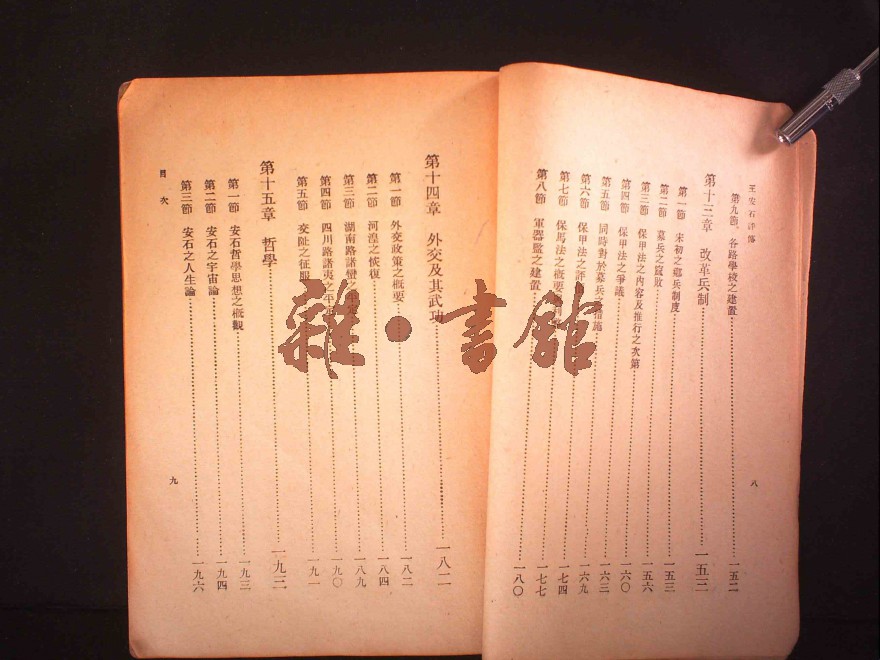 王安石評傳
第九節 各路學校之建置 一五二
第十三章 改革兵制 一五三
第一節 宋初之鄉兵制度 一五三
第二節 募兵之窳敗 一五三
第三節 保甲法之內容及推行之次第 一五六
第四節 保甲法之爭議 一六〇
第五節 同時對於募兵之措施 一六三
第六節 保甲法之評 一六九
第七節 保馬法之概要 一七四
第八節 軍器監之建置 一七七
一八〇
八
第十四章 外交及其武功 一八二
第一節 外交政策之概要 一八二
第二節 河湟之恢復 一八四
第三節 湖南路諸蠻之平定 一八九
第四節 四川路諸夷之平 一九〇
第五節 交趾之征服 一九一
第十五章 哲學 一九三
第一節 安石哲學思想之概觀 一九三
第二節 安石之宇宙論 一九四
第三節 安石之人生論 一九六
目次
九
雜·書館